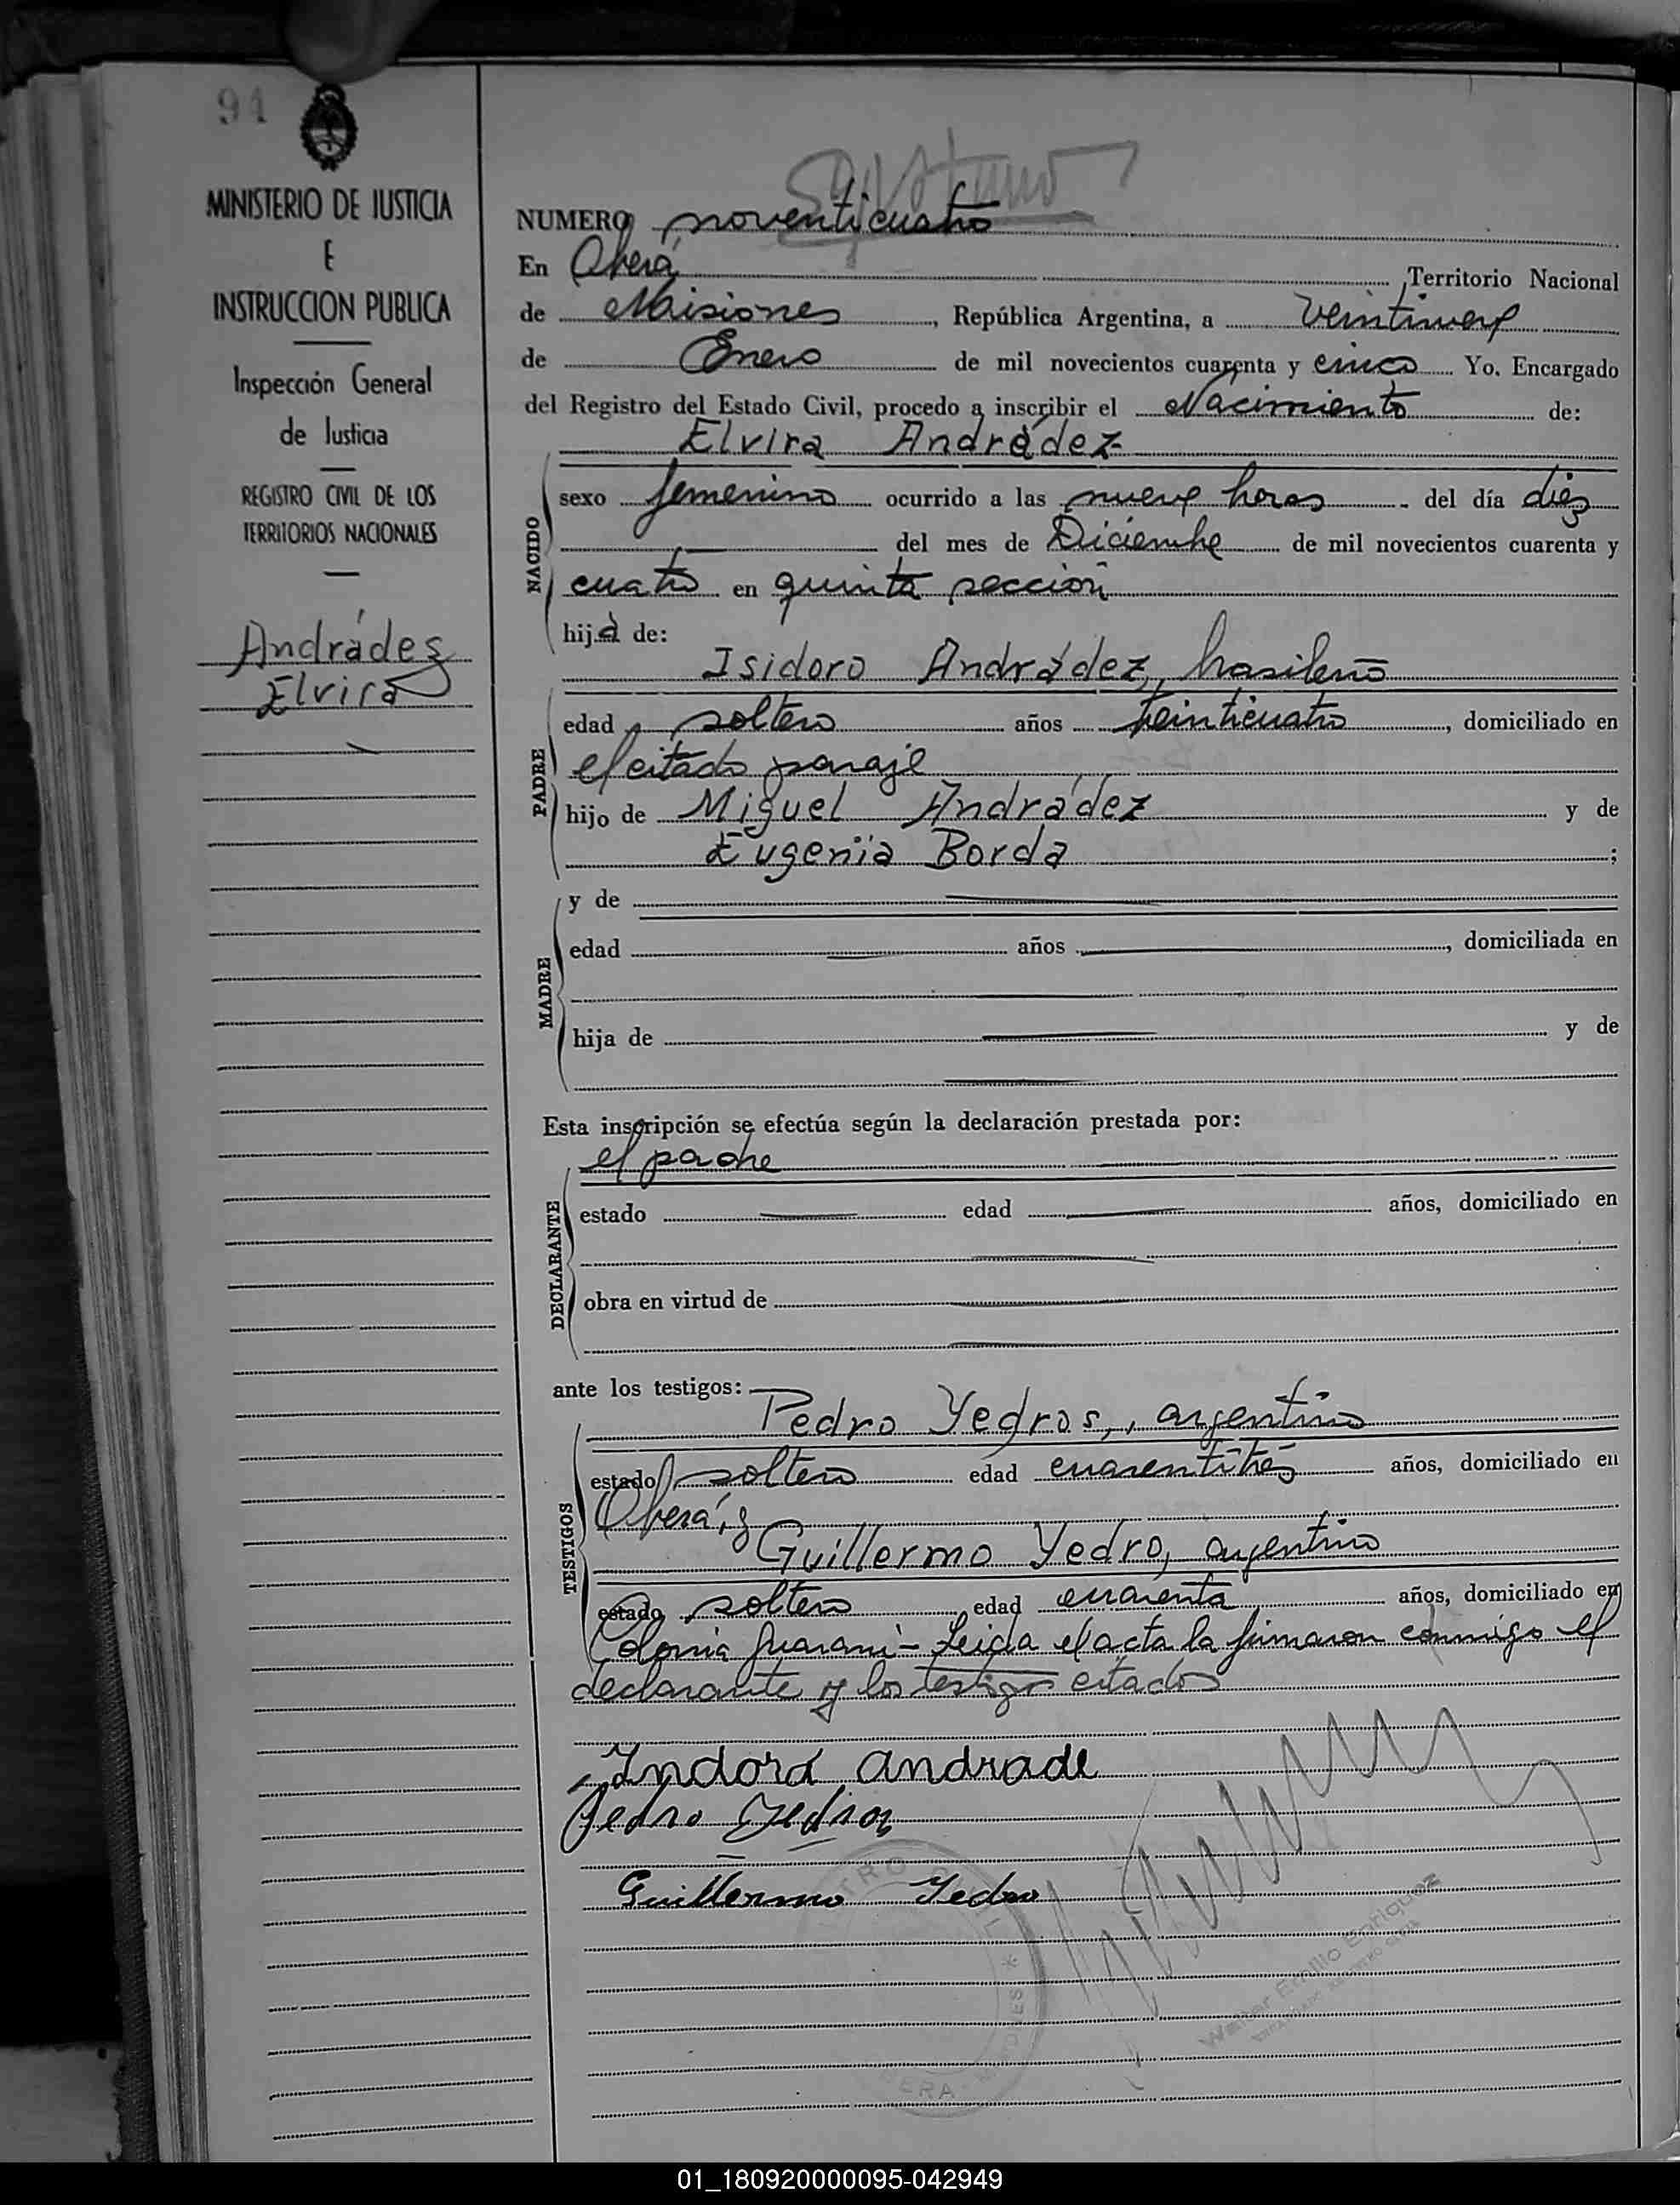 94
MINISTERIO DE JUSTICIA
E
INSTRUCCION PUBLICA
Inspección General
de Justicia
REGISTRO CIVIL DE LOS
TERRITORIOS NACIONALES
Andrádez
Elvira
NUMERO noventicuatro
En Oberá, Territorio Nacional
de Misiones, República Argentina, a veintinueve
de Enero de mil novecientos cuarenta y cinco Yo. Encargado
del Registro del Estado Civil, procedo a inscribir el Nacimiento de:
Elvira Andrádez
NACIDO
sexo femenino ocurrido a las nueve horas del día diez
del mes de Diciembre de mil novecientos cuarenta y
cuatro en quinta sección
hija de:
Isidoro Andrádez, brasileño
PADRE
edad soltero años veinticuatro, domiciliado en
el citado paraje
hijo de Miguel Andrádez y de
Eugenia Borda ;
MADRE
y de
edad años , domiciliada en
hija de y de
Esta inscripción se efectúa según la declaración prestada por:
el padre
DECLARANTE
estado edad años, domiciliado en
obra en virtud de
ante los testigos:
Pedro Yedros, argentino
TESTIGOS
estado soltero edad cuarentitrés años, domiciliado en
Oberá, y
Guillermo Yedro, argentino
estado soltero edad cuarenta años, domiciliado en
Colonia Guaraní - Leída el acta la firmaron conmigo el
declarante y los testigos citados
Isidoro andrade
Pedro Yedros
Guillermo Yedro
Walter Emilio Enriquez
01_180920000095-042949